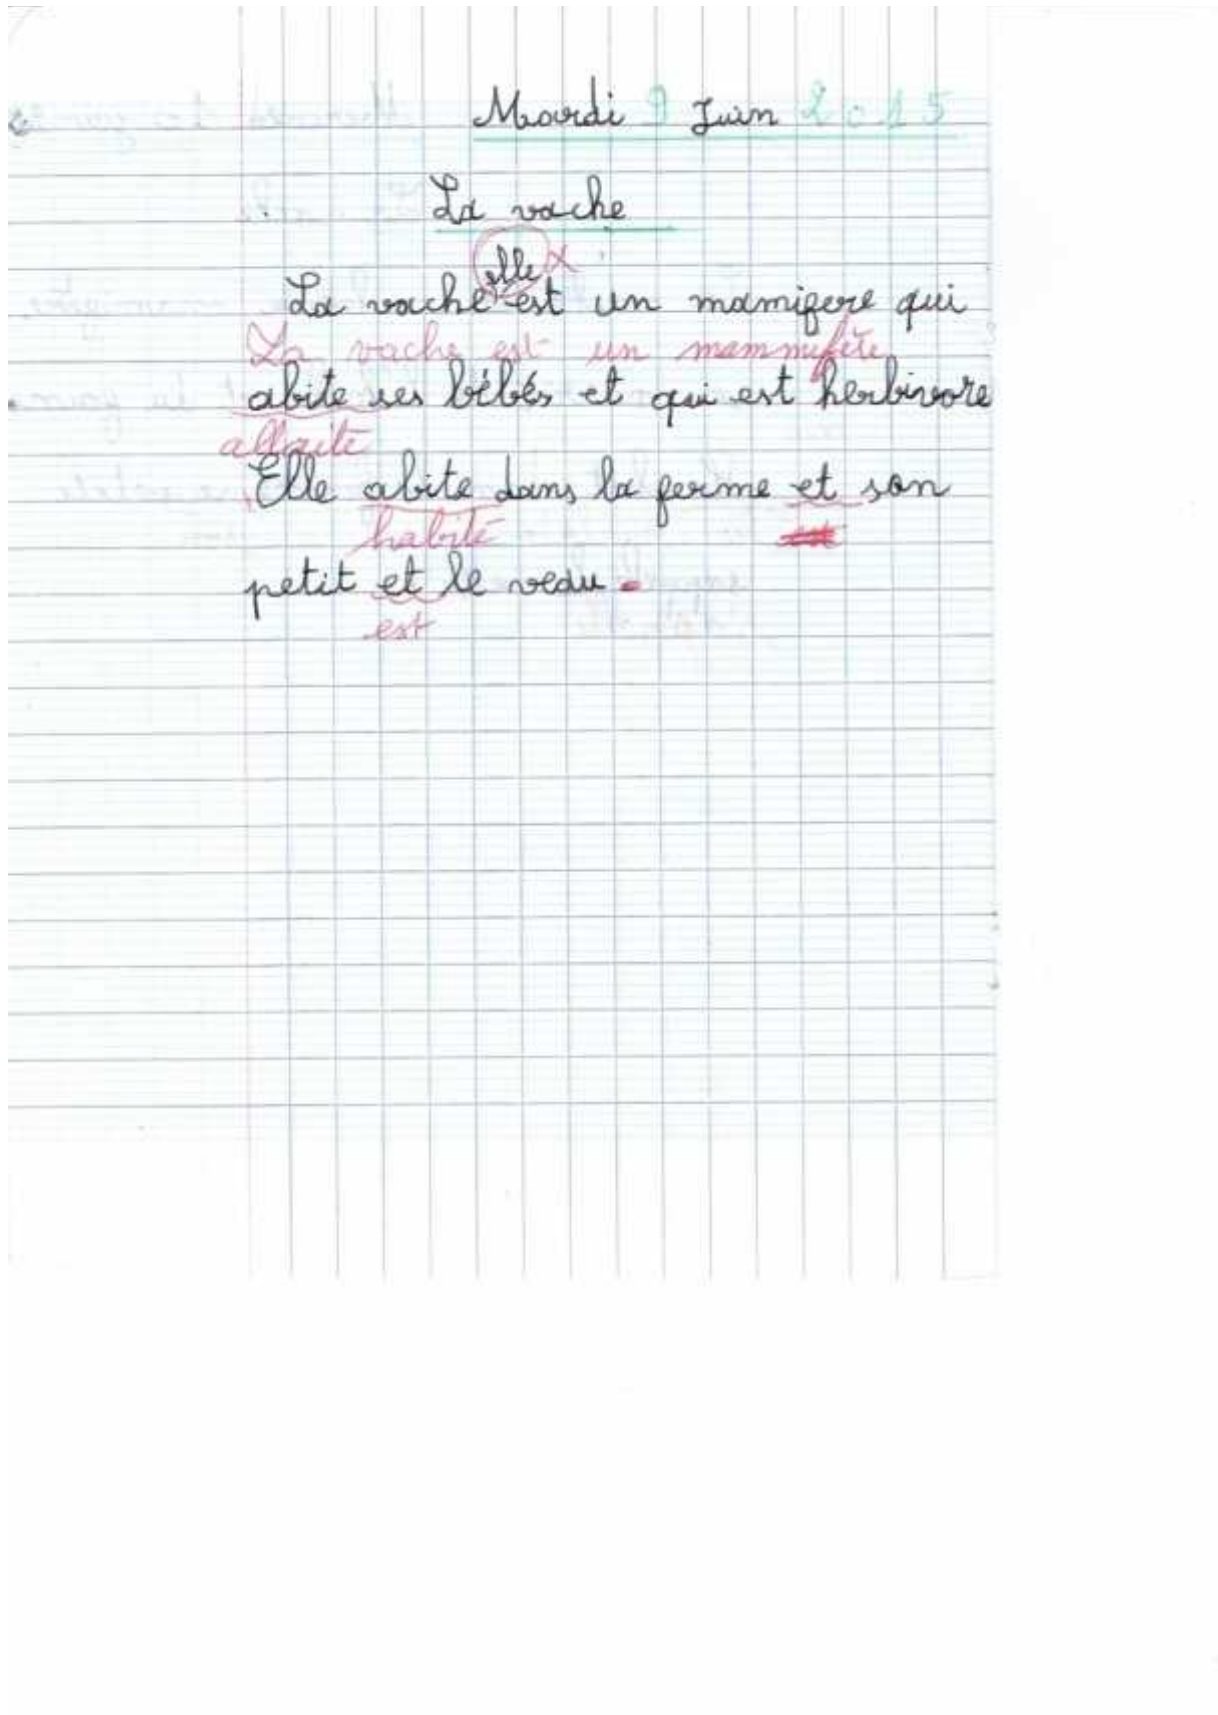 Mardi 9 Juin 2015
La vache
elle x
La vache est un mamifere qui
La vache est un mammifère
abite ses bébés et qui est herbivore
allaite
Elle abite dans la ferme et son
habite
petit et le veau.
est